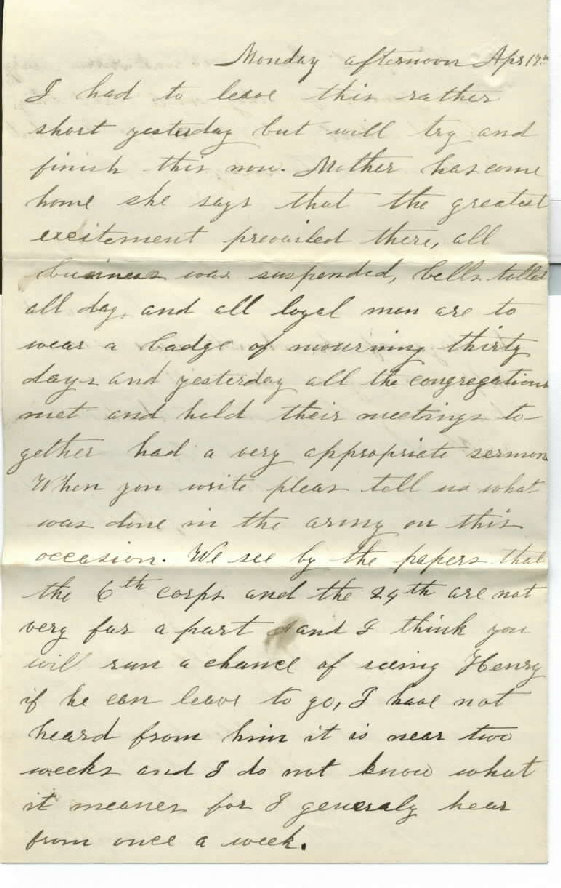 Monday afternoon Apr 17th
I had to leave this rather
short yesterday but will try and
finish this now. Mother has come
home she says that the greatest
exsitement prevailed there, all
business was suspended, bells tolled
all day, and all loyal men are to
wear a badge of mourning thirty
days and yesterday all the congregations
met and held their meetings to-
gether had a very appropriate sermon
When you write pleas tell us what
was done in the army on this
occasion. We see by the papers that
the 6th corps and the 24th are not
very far a part and I think you
will run a chance of seeing Henry
if he can leave to go, I have not
heard from him it is near two
weeks and I do not know what
it meanes for I generaly hear
from once a week.